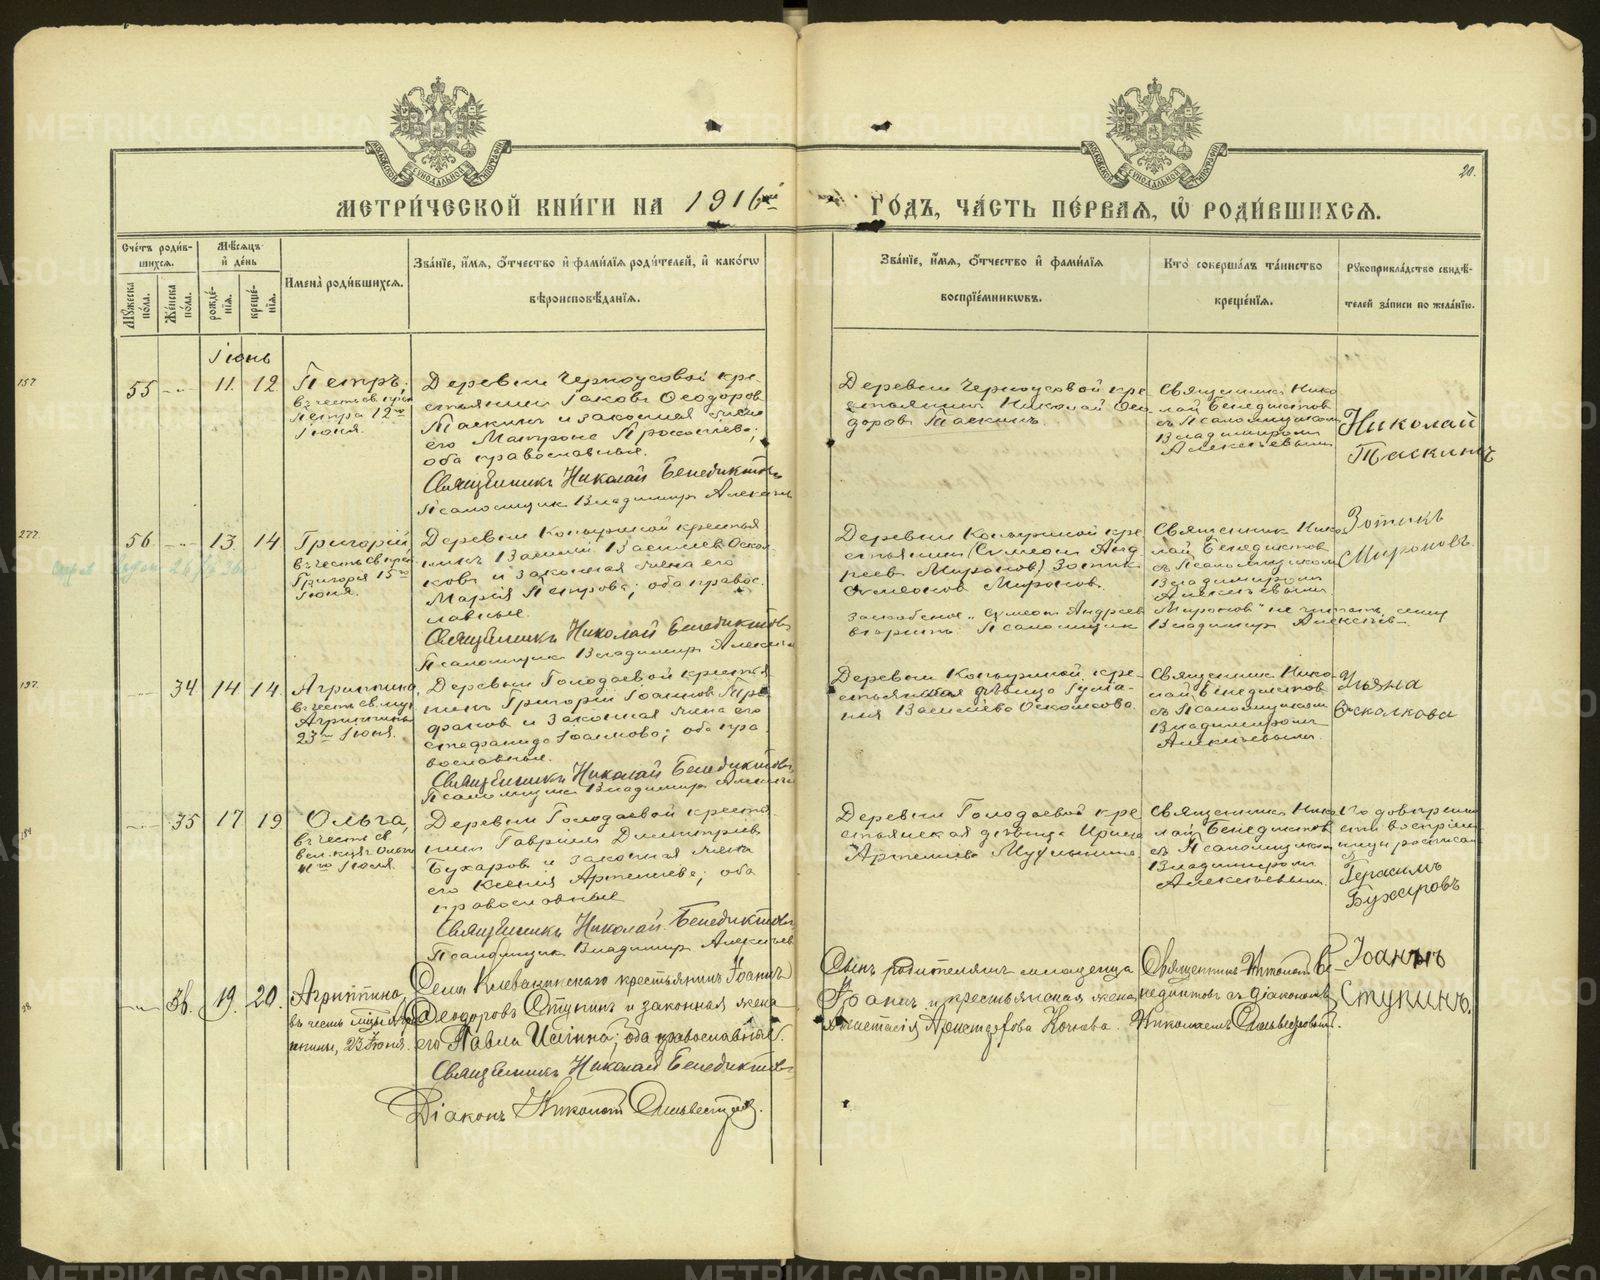 20.
МЕТРИ́ЧЕСКОЙ КНИ́ГИ НА 1916й ГО́ДЪ, ЧА́СТЬ ПЕ́РВАЯ, Ѡ҆ РОДИ́ВШИХСЯ.
Сче́тъ роди́в-
шихся.
Мꙋ́жеска по́ла.
Же́нска по́ла.
Мѣ́сяцъ и҆ де́нь
рожде́-
нїя.
креще́-
нїя.
Имена̀ роди́вшихся.
Зва́нїе, и҆́мя, ѻ҆́тчество и҆ фами́лїя роди́телей, и҆ како́гѡ
вѣроисповѣ́данїя.
Зва́нїе, и҆́мя, ѻ҆́тчество и҆ фами́лїя
воспрїе́мникѡвъ.
Кто̀ соверша́лъ та́инство
креще́нїя.
Рꙋкоприкла́дство свидѣ́-
телей за́писи по жела́нїю.
Іюнь
157.
55 11. 12.
Петръ,
въ честь св. прп.
Петра 12го
Іюня.
Деревни Черноусовой кре-
стьянинъ Іаковъ Ѳеодоровъ
Таскинъ и законная жена
его Матрона Прокопіева;
оба православные.
Священникъ Николай Бенедиктовъ
Псаломщикъ Владимиръ Алексѣевъ
Деревни Черноусовой кре-
стьянинъ Николай Ѳео-
доровъ Таскинъ.
Священникъ Нико-
лай Бенедиктовъ
съ Псаломщикомъ
Владимиромъ
Алексѣевымъ.
Николай
Таскинъ
277.
56. 13. 14
Григорій,
въ честь св. прп.
Григорія 15го
Іюня.
Деревни Копыриной крестья-
нинъ Василій Васильевъ Оскол-
ковъ и законная жена его
Марія Петрова; оба правос-
лавные.
Священникъ Николай Бенедиктовъ
Псаломщикъ Владимиръ Алексѣевъ
Деревни Копыриной кре-
стьянинъ (Сѵмеонъ Анд-
реевъ Мироновъ) Зотикъ
Сѵмеоновъ Мироновъ.
Священникъ Нико-
лай Бенедиктовъ
съ Псаломщикомъ
Владимиромъ
Алексѣевымъ.
Зотикъ
Мироновъ.
Зачеркнутое „Сѵмеонъ Андреевъ Мироновъ“ не читать, сему
вѣрить. Псаломщикъ Владимиръ Алексѣевъ
197.
34. 14 14.
Агриппина,
въ честь св. муч.
Агриппины
23го Іюня.
Деревни Голодаевой крестья-
нинъ Григорій Іоанновъ
и законная жена его
Стефанида Іоаннова; оба пра-
вославные.
Священникъ Николай Бенедиктовъ
Псаломщикъ Владимиръ Алексѣевъ
Деревни Копыриной кре-
стьянская дѣвица Іулiа-
нія Васильева Осколкова.
Священникъ Нико-
лай Бенедиктовъ
съ Псаломщикомъ
Владимиромъ
Алексѣевымъ.
Ульяна
Осколкова
184
35 17 19
Ольга,
въ честь св.
вел. княг. Ольги
11го Іюля.
Деревни Голодаевой крестья-
нинъ Гавріилъ Димитріевъ
Бухаровъ и законная жена
его Ксенія Артемьева; оба
православные
Священникъ Николай Бенедиктовъ
Псаломщикъ Владимиръ Алексѣевъ
Деревни Голодаевой кре-
стьянская дѣвица Ирина
Артемьева
Священникъ Нико-
лай Бенедиктовъ
съ Псаломщикомъ
Владимиромъ
Алексѣевымъ.
По довѣрен-
ности воспрiем-
ницы расписался
Герасимъ
Бухаровъ
36. 19. 20.
Агриппина,
въ честь мцы Агри-
ппины, 23 Іюня.
Села Клевакинскаго крестьянинъ Іоаннъ
Ѳеодоровъ Ступинъ и законная жена
его Павла; оба православные.
Священникъ Николай Бенедиктовъ
Діаконъ Николай Сильвестровъ.
Сынъ родителямъ младенца
Іоаннъ и крестьянская жена
Анастасія Аристархова
Священникъ Николай Бе-
недиктовъ съ діакономъ
Николаемъ Сильвестровымъ.
Іоаннъ
Ступинъ.